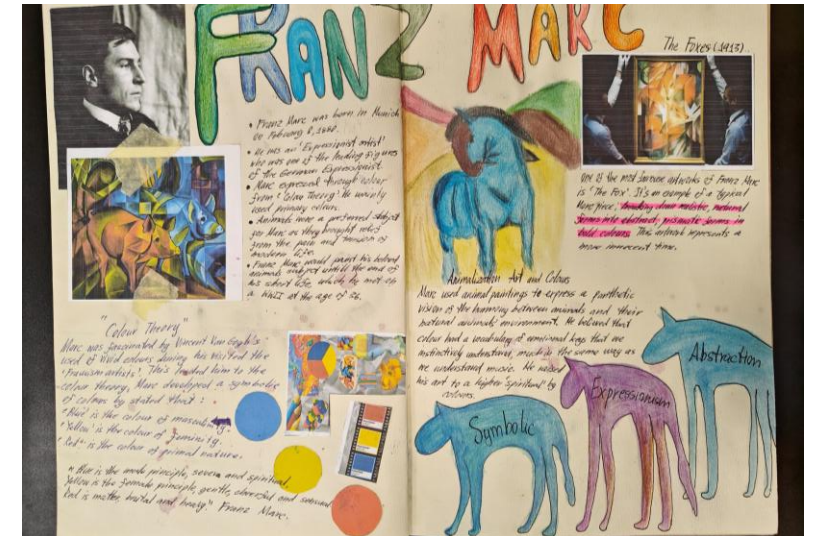 FRANZ MARC
• Franz Marc was born in Munich
on February 8, 1880.
• He was an 'Expressionist artist'
who was one of the leading figures
of the German Expressionist
• Marc expressed through colour
from 'Colour Theory'. He mainly
used primary colours.
• Animals were a preferred subject
for Marc as they brought relief
from the pain and tension of
modern life.
• Franz Marc would paint his beloved
animals subject until the end of
his short life, which he met on
a blast at the age of 36.
"Colour Theory"
Marc was fascinated by Vincent Van Gogh's
used of vivid colours during his visited the
"Fauvism artists". This leaded him to the
colour theory, Marc developed a symbolic
of colours by stated that:
"Blue' is the colour of masculinity.
'Yellow' is the colour of feminity.
"Red" is the colour of primal nature.
" Blue is the male principle, severe and spiritual.
Yellow is the female principle, gentle, cheerful and sensual
Red is matter, brutal and heavy" Franz Marc.
The Foxes (1913)
One of the most famous artworks of Franz Marc
is 'The Fox'. It's an example of a typical
Marc piece, breaking down realistic, natural
forms into abstract, prismatic forms in
bold colours. This artwork represents a
more innocent time.
Animalization Art and Colours
Marc used animal paintings to express a panthetic
vision of the harmony between animals and their
natural animals' environment. He believed that
colour had a vocabulary of emotional keys that we
instinctively understand, much in the same way as
we understand music. He raised
his art to a higher spiritual by
colours.
Symbolic
Expressionism
Abstraction